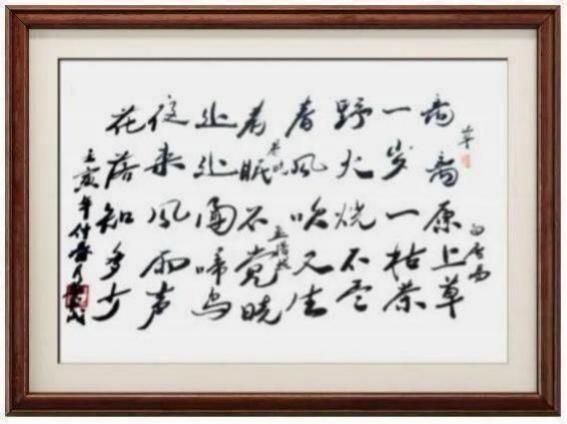 草
白居易
离离原上草
一岁一枯荣
野火烧不尽
春风吹又生
春晓
孟浩然
春眠不觉晓
处处闻啼鸟
夜来风雨声
花落知多少
亥年